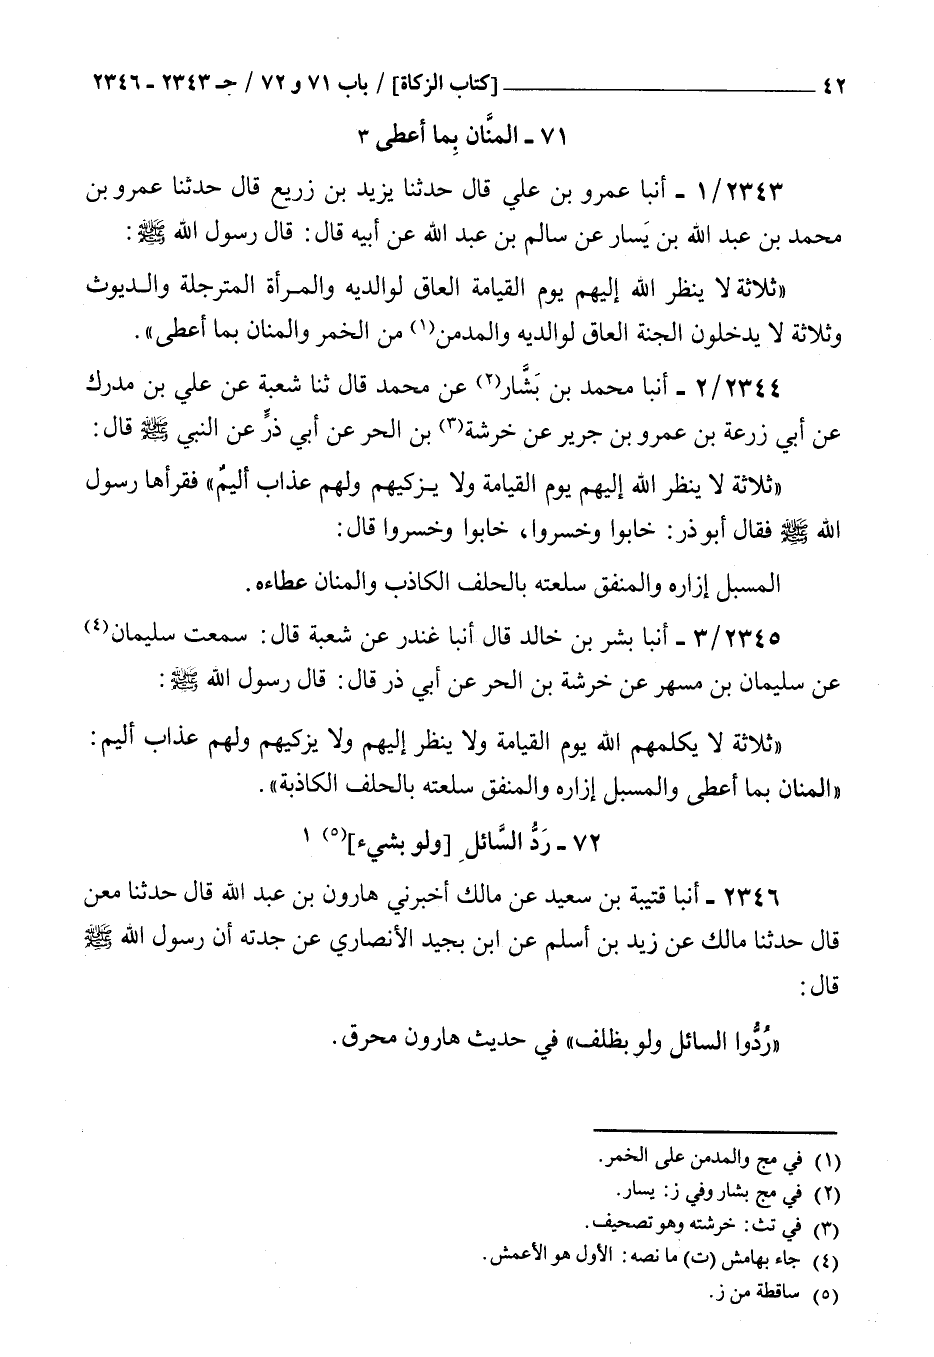 ٤٢ [كتاب الزكاة] / باب ٧١ و ٧٢ / جـ ٢٣٤٣ ـ ٢٣٤٦
٧١ ـ المنَّان بِما أعطى ٣
١/٢٣٤٣ ـ أنبا عمرو بن علي قال حدثنا يزيد بن زريع قال حدثنا عمرو بن
محمد بن عبد الله بن يَسار عن سالم بن عبد الله عن أبيه قال: قال رسول الله ﷺ:
«ثلاثة لا ينظر الله إليهم يوم القيامة العاق لوالديه والمـرأة المترجلة والـديوث
وثلاثة لا يدخلون الجنة العاق لوالديه والمدمن(١) من الخمر والمنان بما أعطى».
٢/٢٣٤٤ ـ أنبا محمد بن بَشَّار(٢) عن محمد قال ثنا شعبة عن علي بن مدرك
عن أبي زرعة بن عمرو بن جرير عن خرشة(٣) بن الحر عن أبي ذرٍّ عن النبي ﷺ قال:
«ثلاثة لا ينظر الله إليهم يوم القيامة ولا يـزكيهم ولهم عذاب أليمٌ» فقرأها رسول
الله ﷺ فقال أبو ذر: خابوا وخسروا، خابوا وخسروا قال:
المسبل إزاره والمنفق سلعته بالحلف الكاذب والمنان عطاءه.
٣/٢٣٤٥ ـ أنبا بشر بن خالد قال أنبا غندر عن شعبة قال: سمعت سليمان(٤)
عن سليمان بن مسهر عن خرشة بن الحر عن أبي ذر قال: قال رسول الله ﷺ:
«ثلاثة لا يكلمهم الله يوم القيامة ولا ينظر إليهم ولا يزكيهم ولهم عذاب أليم:
«المنان بما أعطى والمسبل إزاره والمنفق سلعته بالحلف الكاذبة».
٧٢ ـ رَدُّ السَّائلِ [ولو بشيء](٥) ١
٢٣٤٦ ـ أنبا قتيبة بن سعيد عن مالك أخبرني هارون بن عبد الله قال حدثنا معن
قال حدثنا مالك عن زيد بن أسلم عن ابن بجيد الأنصاري عن جدته أن رسول الله ﷺ
قال:
«رُدُّوا السائل ولو بظلف» في حديث هارون محرق.
(١) في مج والمدمن على الخمر.
(٢) في مج بشار وفي ز: يسار.
(٣) في تث: خرشته وهو تصحيف.
(٤) جاء بهامش (ت) ما نصه: الأول هو الأعمش.
(٥) ساقطة من ز.